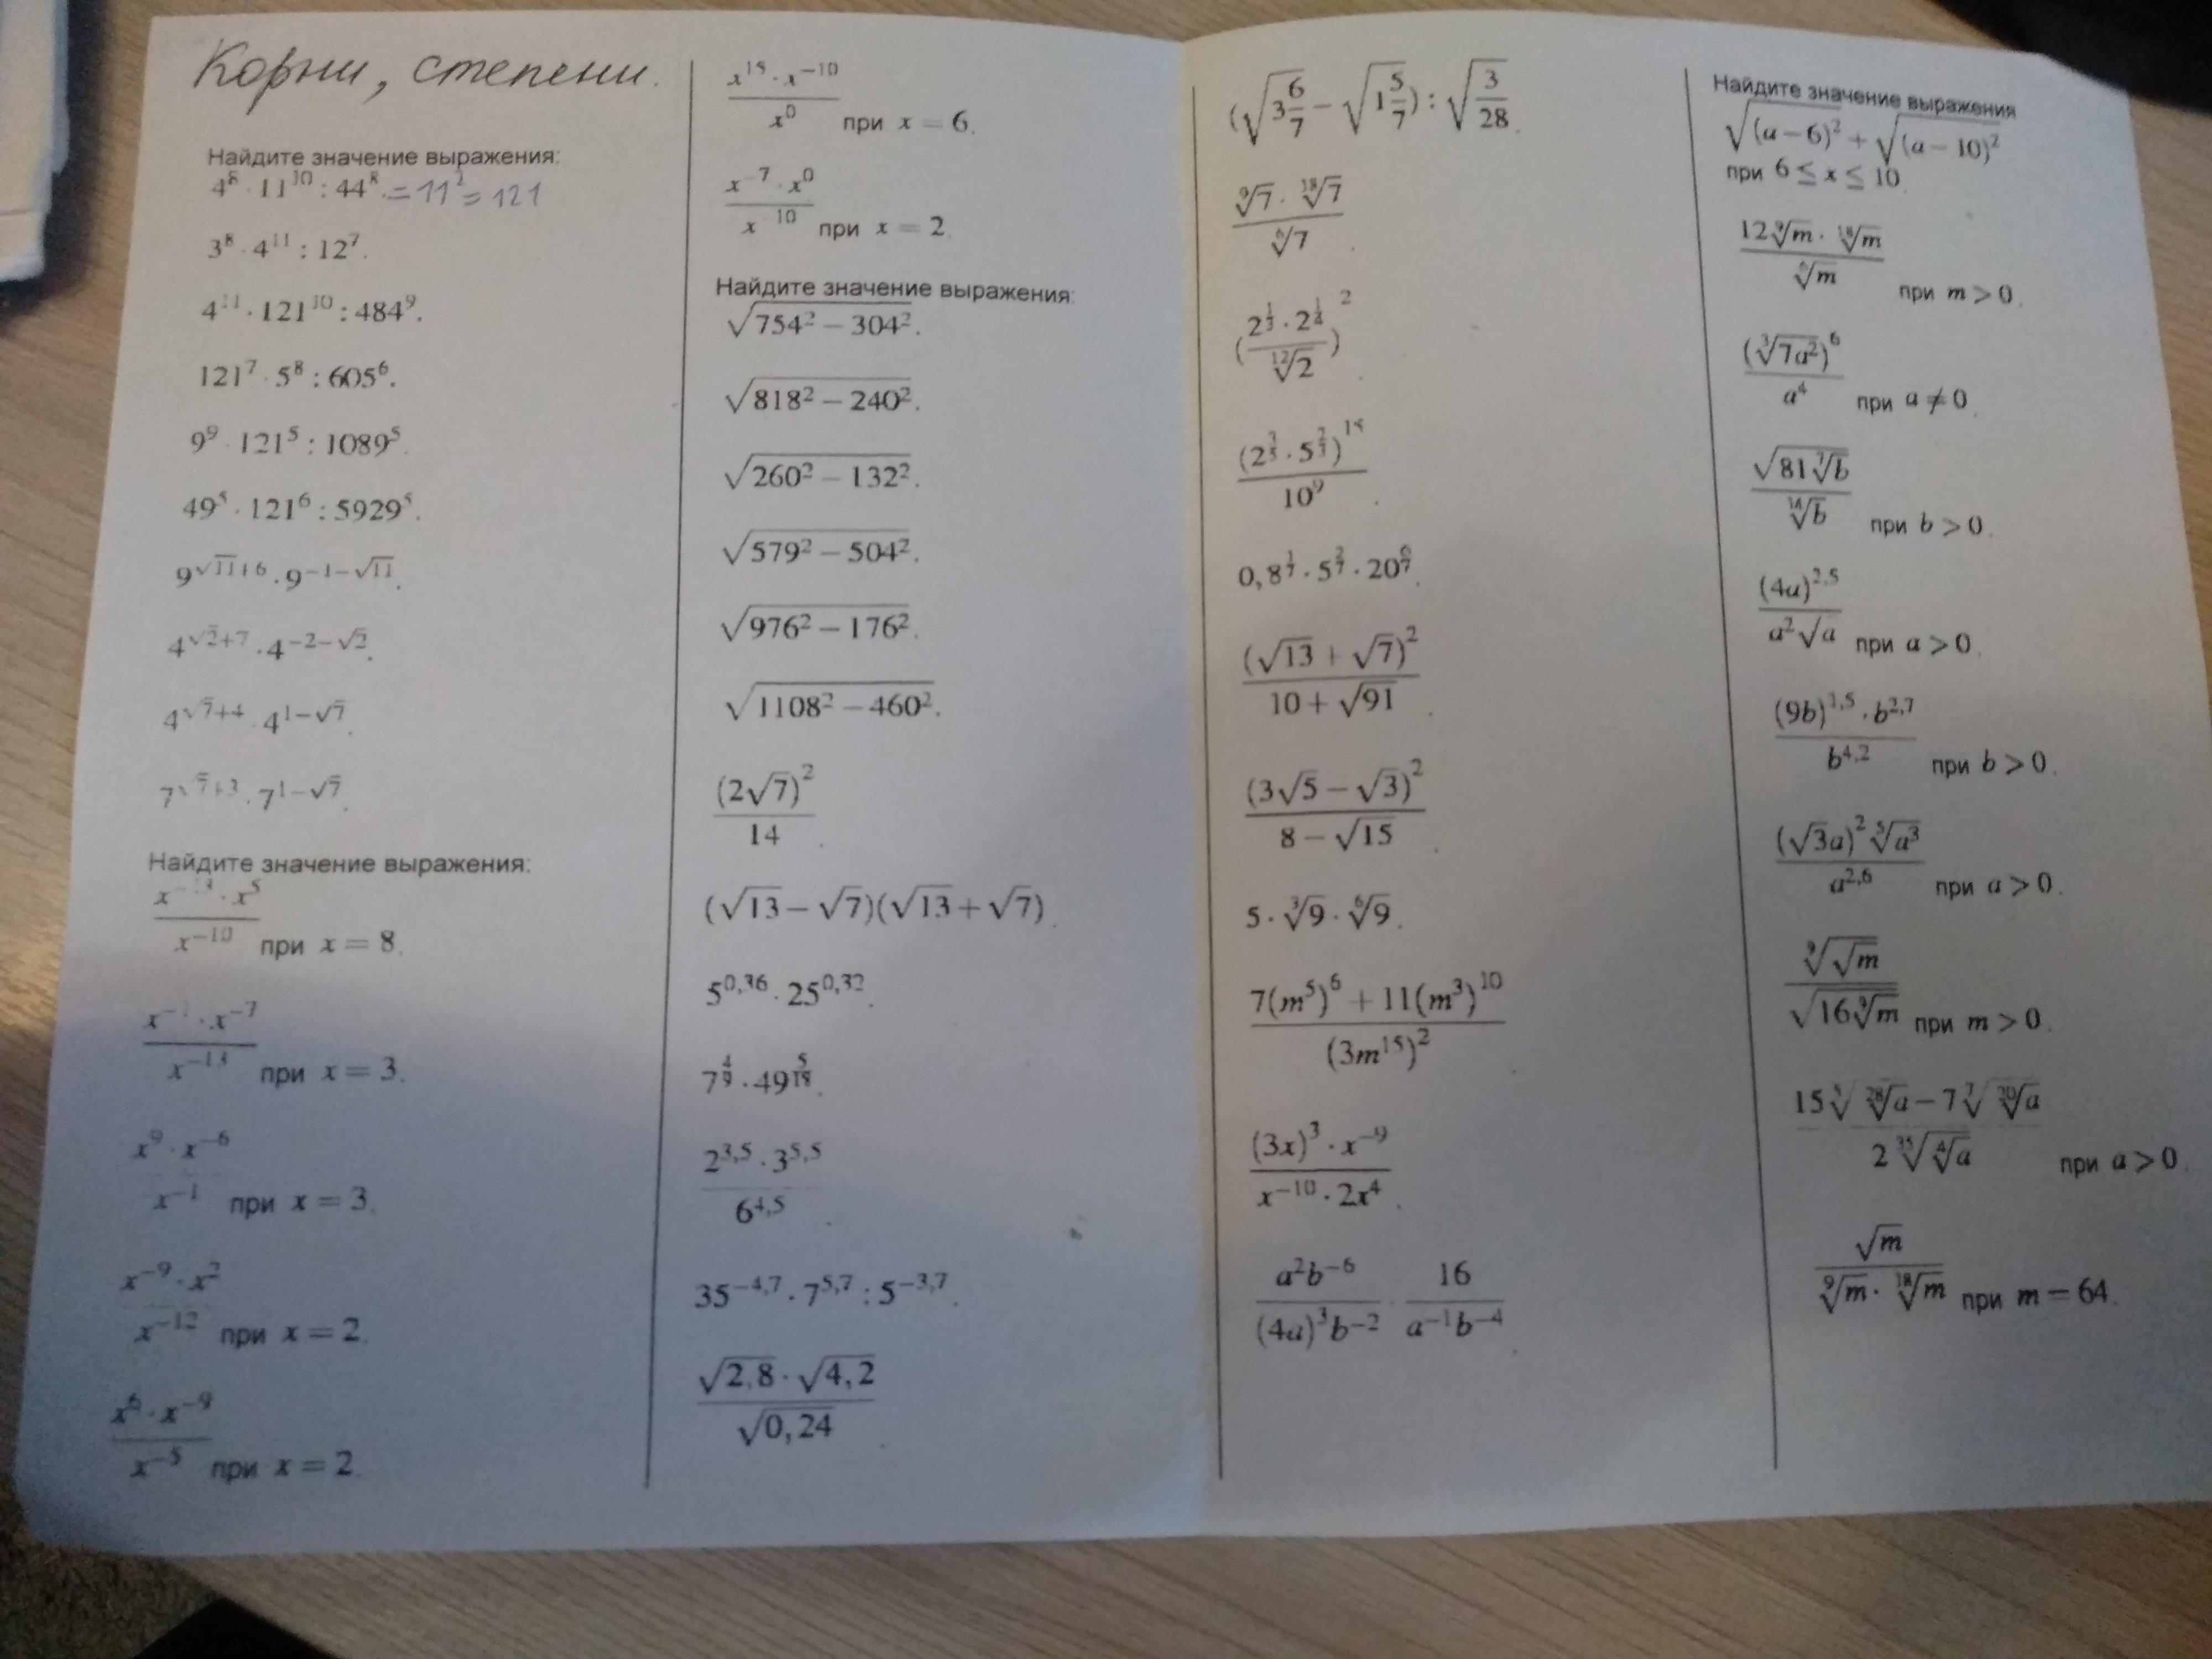 Корни, степени.
Найдите значение выражения:
4⁸ · 11¹⁰ : 44⁸. = 11² = 121
3⁸ · 4¹¹ : 12⁷.
4¹¹ · 121¹⁰ : 484⁹.
121⁷ · 5⁸ : 605⁶.
9⁹ · 121⁵ : 1089⁵.
49⁵ · 121⁶ : 5929⁵.
9^(√11+6) · 9^(−1−√11).
4^(√2+7) · 4^(−2−√2).
4^(√7+4) · 4^(1−√7).
7^(√7+3) · 7^(1−√7).
Найдите значение выражения:
(x⁻¹³ · x⁵)/x⁻¹⁰ при x = 8.
x⁻⁷/x⁻¹³ при x = 3.
(x⁹ · x⁻⁶)/x⁻¹ при x = 3.
(x⁻⁹ · x²)/x⁻¹² при x = 2.
(x⁶ · x⁻⁹)/x⁻⁵ при x = 2.
(x¹⁵ · x⁻¹⁰)/x⁰ при x = 6.
(x⁻⁷ · x⁰)/x⁻¹⁰ при x = 2.
Найдите значение выражения:
√(754² − 304²).
√(818² − 240²).
√(260² − 132²).
√(579² − 504²).
√(976² − 176²).
√(1108² − 460²).
(2√7)²/14.
(√13 − √7)(√13 + √7).
5^(0,36) · 25^(0,32).
7^(4/9) · 49^(5/18).
(2^(3,5) · 3^(5,5))/6^(4,5).
35^(−4,7) · 7^(5,7) : 5^(−3,7).
(√2,8 · √4,2)/√0,24.
(√(3 6/7) − √(1 5/7)) : √(3/28).
(⁹√7 · ¹⁸√7)/⁶√7.
((2^(1/3) · 2^(1/4))/¹²√2)².
(2^(3/5) · 5^(2/3))¹⁵/10⁹.
0,8^(1/7) · 5^(2/7) · 20^(6/7).
(√13 + √7)²/(10 + √91).
(3√5 − √3)²/(8 − √15).
5 · ³√9 · ⁶√9.
(7(m⁵)⁶ + 11(m³)¹⁰)/(3m¹⁵)².
((3x)³ · x⁻⁹)/(x⁻¹⁰ · 2x⁴).
(a²b⁻⁶)/((4a)³b⁻²) · 16/(a⁻¹b⁻⁴).
Найдите значение выражения
√((a − 6)²) + √((a − 10)²)
при 6 ≤ x ≤ 10.
(12 ⁹√m · ¹⁸√m)/⁶√m при m > 0.
(³√(7a²))⁶/a⁴ при a ≠ 0.
√(81 ⁷√b)/¹⁴√b при b > 0.
(4a)^(2,5)/(a²√a) при a > 0.
((9b)^(1,5) · b^(2,7))/b^(4,2) при b > 0.
((√3a)² ⁵√(a³))/a^(2,6) при a > 0.
⁹√(√m)/√(16 ⁹√m) при m > 0.
(15 ⁵√(²⁸√a) − 7 ⁷√(²⁰√a))/(2 ³⁵√(⁴√a)) при a > 0.
√m/(⁹√m · ¹⁸√m) при m = 64.